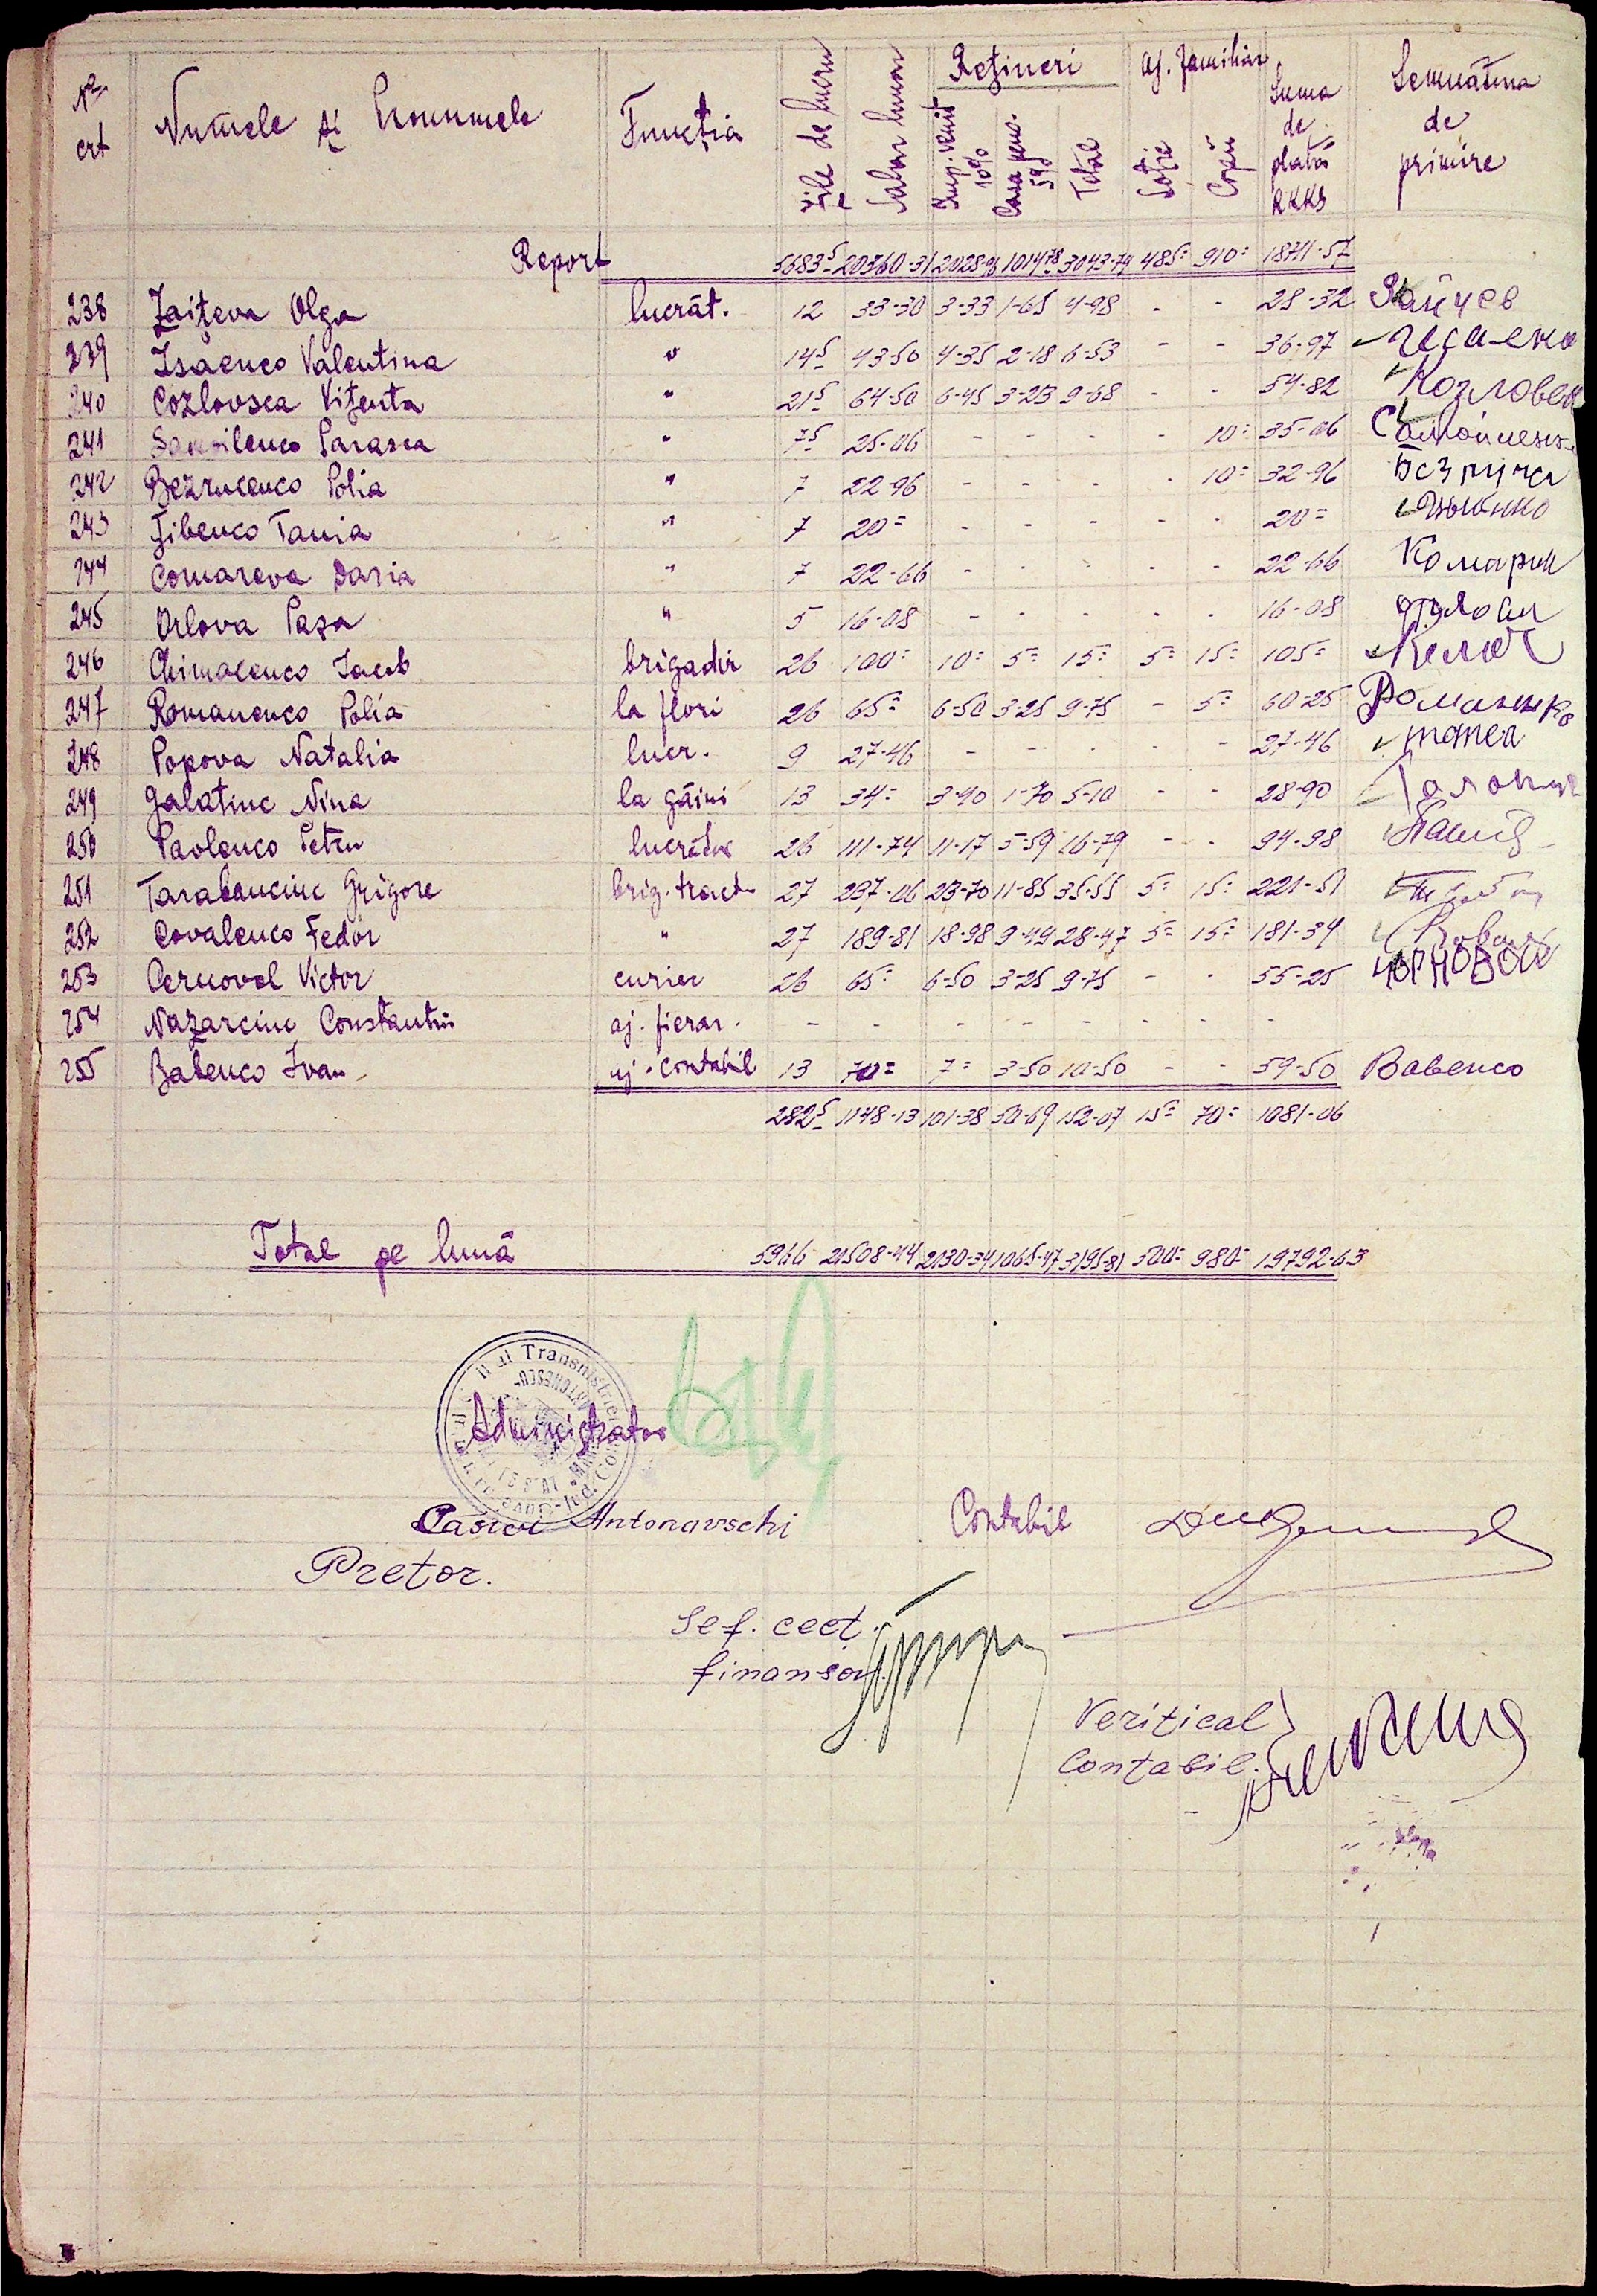 Nº crt Numele și Pronumele Funcția zile de lucru Salar lunar Rețineri Imp. venit 10% Casa pens. 5% Total Aj. familiar Soție Copii Suma de plată RKKS Semnătura de primire
Report 5683⁵ 20360-31 2028-96 1014-78 3043-74 485= 910= 18711-57
238 Zaițeva Olga lucrăt. 12 33-30 3-33 1-65 4-98 - - 28-32 Зайцев
239 Isaenco Valentina " 14⁵ 43-50 4-35 2-18 6-53 - - 36-97
240 Cozlovsca Vițenta " 21⁵ 64-50 6-45 3-23 9-68 - - 54-82 Козловск
241 Samoilenco Parasca " 7⁵ 25-06 - - - - 10= 35-06
242 Bezrucenco Polia " 7 22-96 - - - - 10= 32-96
243 Țibenco Tania " 7 20= - - - - - 20=
244 Comareva Daria " 7 22-66 - - - - - 22-66 Комарик
245 Orlova Pașa " 5 16-08 - - - - - 16-08
246 Chimacenco Iacob brigadir 26 100= 10= 5= 15= 5= 15= 105=
247 Romanenco Polia la flori 26 65= 6-50 3-25 9-75 - 5= 60-25 Романенко
248 Popova Natalia lucr. 9 27-46 - - - - - 27-46
249 Galatiuc Nina la găini 13 34= 3-40 1-70 5-10 - - 28-90
250 Pavlenco Petru lucrător 26 111-74 11-17 5-59 16-79 - - 94-98
251 Tarabanciuc Grigore brig. tract. 27 237-06 23-70 11-85 35-55 5= 15= 221-51
252 Covalenco Fedor " 27 189-81 18-98 9-49 28-47 5= 15= 181-34
253 Cernovol Victor curier 26 65= 6-50 3-25 9-75 - - 55-25 Чорновол
254 Nazarciuc Constantin aj. fierar. - - - - - - - -
255 Babenco Ivan aj. contabil 13 70= 7= 3-50 10-50 - - 59-50 Babenco
282⁵ 1148-13 101-38 50-69 152-07 15= 70= 1081-06
Total pe lună 5966 21508-44 2130-34 1065-47 3195-81 500= 980= 19792-63
Administrator
Casier Antonavschi Contabil
Pretor.
Sef. cect.
finansov.
Veritical
Contabil.